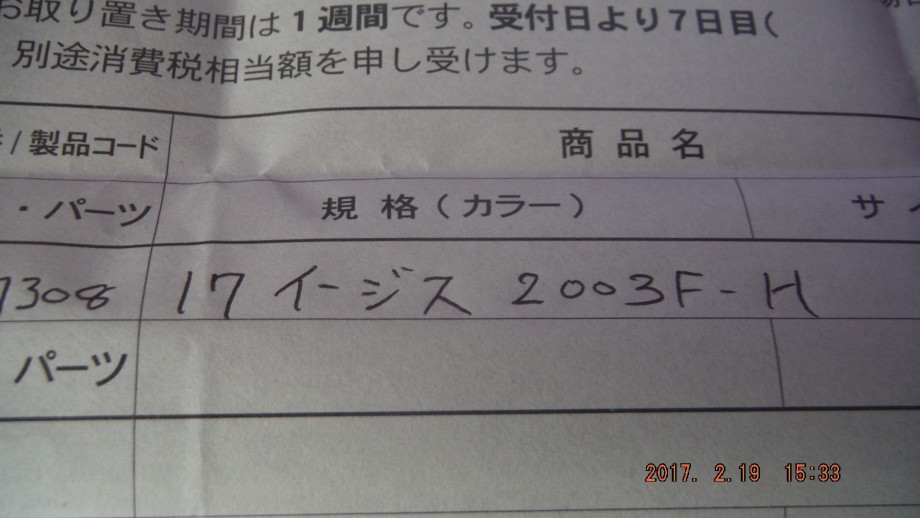 お取り置き期間は1週間です。受付日より7日目(
別途消費税相当額を申し受けます。
/製品コード 商品名
・パーツ 規格(カラー) サイ
7308 17 イージス 2003F-H
パーツ
2017. 2.19 15:33